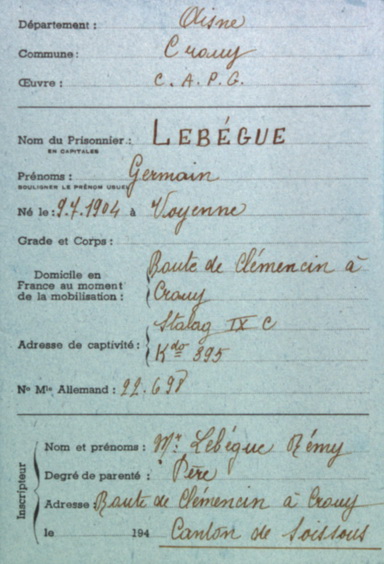 Département : Aisne
Commune : Crouy
Œuvre : C. A. P. G.
Nom du Prisonnier : LEBÉGUE
EN CAPITALES
Prénoms : Germain
SOULIGNER LE PRÉNOM USUEL
Né le : 9.7.1904 à Voyenne
Grade et Corps :
Domicile en France au moment de la mobilisation : Route de Clémencin à
Crouy
Adresse de captivité : Stalag IX C
Kdo 895
No Mle Allemand : 22.698
Inscripteur
Nom et prénoms : Mr Lebégue Rémy
Degré de parenté : Père
Adresse : Route de Clémencin à Crouy
le 194 Canton de Soissons